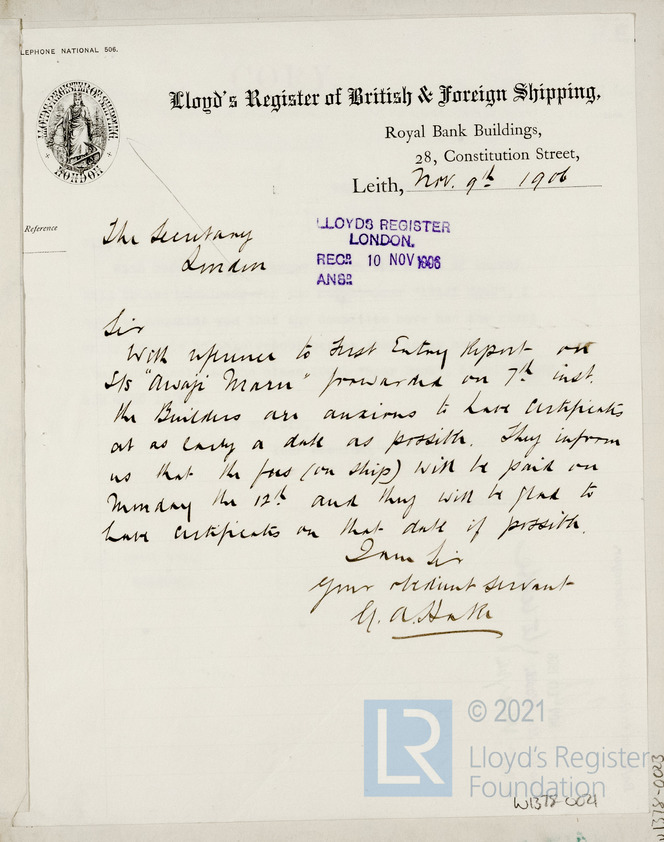 LEPHONE NATIONAL 506.
LLOYD'S REGISTER OF SHIPPING
LONDON
Lloyd's Register of British & Foreign Shipping,
Royal Bank Buildings,
28, Constitution Street,
Leith, Nov. 9th 1906
Reference
The Secretary
London
LLOYDS REGISTER
LONDON.
RECD. 10 NOV 1906
ANSD.
Sir
With reference to First Entry Report on
S/s "Awaji Maru" forwarded on 7th inst.
the Builders are anxious to have Certificates
at as early a date as possible. They inform
us that the fees (on ship) will be paid on
Monday the 12th and they will be glad to
have Certificates on that date if possible.
I am Sir
Your obedient servant
LR
© 2021
Lloyd's Register
Foundation
W1378-0021
W1378-0023